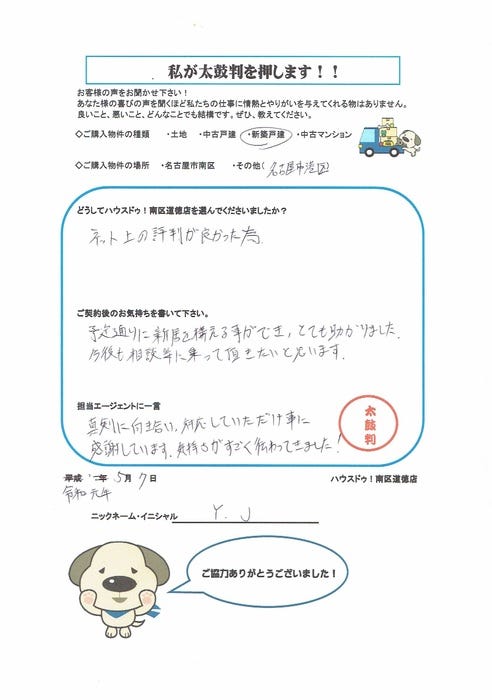 私が太鼓判を押します！！
お客様の声をお聞かせ下さい！
あなた様の喜びの声を聞くほど私たちの仕事に情熱とやりがいを与えてくれる物はありません。
良いこと、悪いこと、どんなことでも結構です。ぜひ、教えてください。
◇ご購入物件の種類　・土地　・中古戸建　・新築戸建　・中古マンション
◇ご購入物件の場所　・名古屋市南区　・その他(名古屋市港区)
どうしてハウスドゥ！南区道徳店を選んでくださいましたか？
ネット上の評判が良かった為
ご契約後のお気持ちを書いて下さい。
予定通りに新居を構える事ができ、とても助かりました。
今後も相談等に乗って頂きたいと思います。
担当エージェントに一言
真剣に向き合い、対応していただけ事に
感謝しています。気持ちがすごく伝わってきました！
太鼓判
平成 年 5月 7日
ハウスドゥ！南区道徳店
令和元年
ニックネーム・イニシャル Y. J
ご協力ありがとうございました！